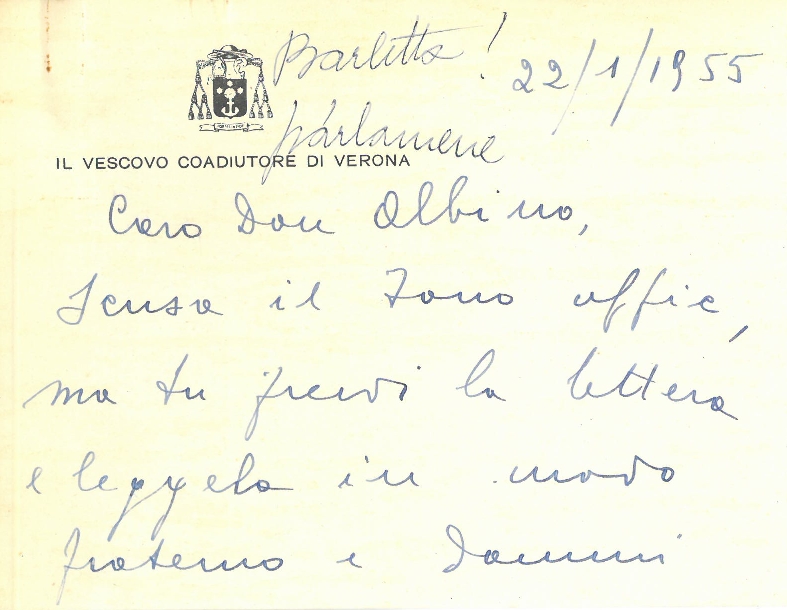 Barletta! 22/1/1955
parlamene
IL VESCOVO COADIUTORE DI VERONA
Caro Don Albino,
scusa il tono uffic,
ma tu prendi la lettera
e leggela in modo
fraterno e dammi